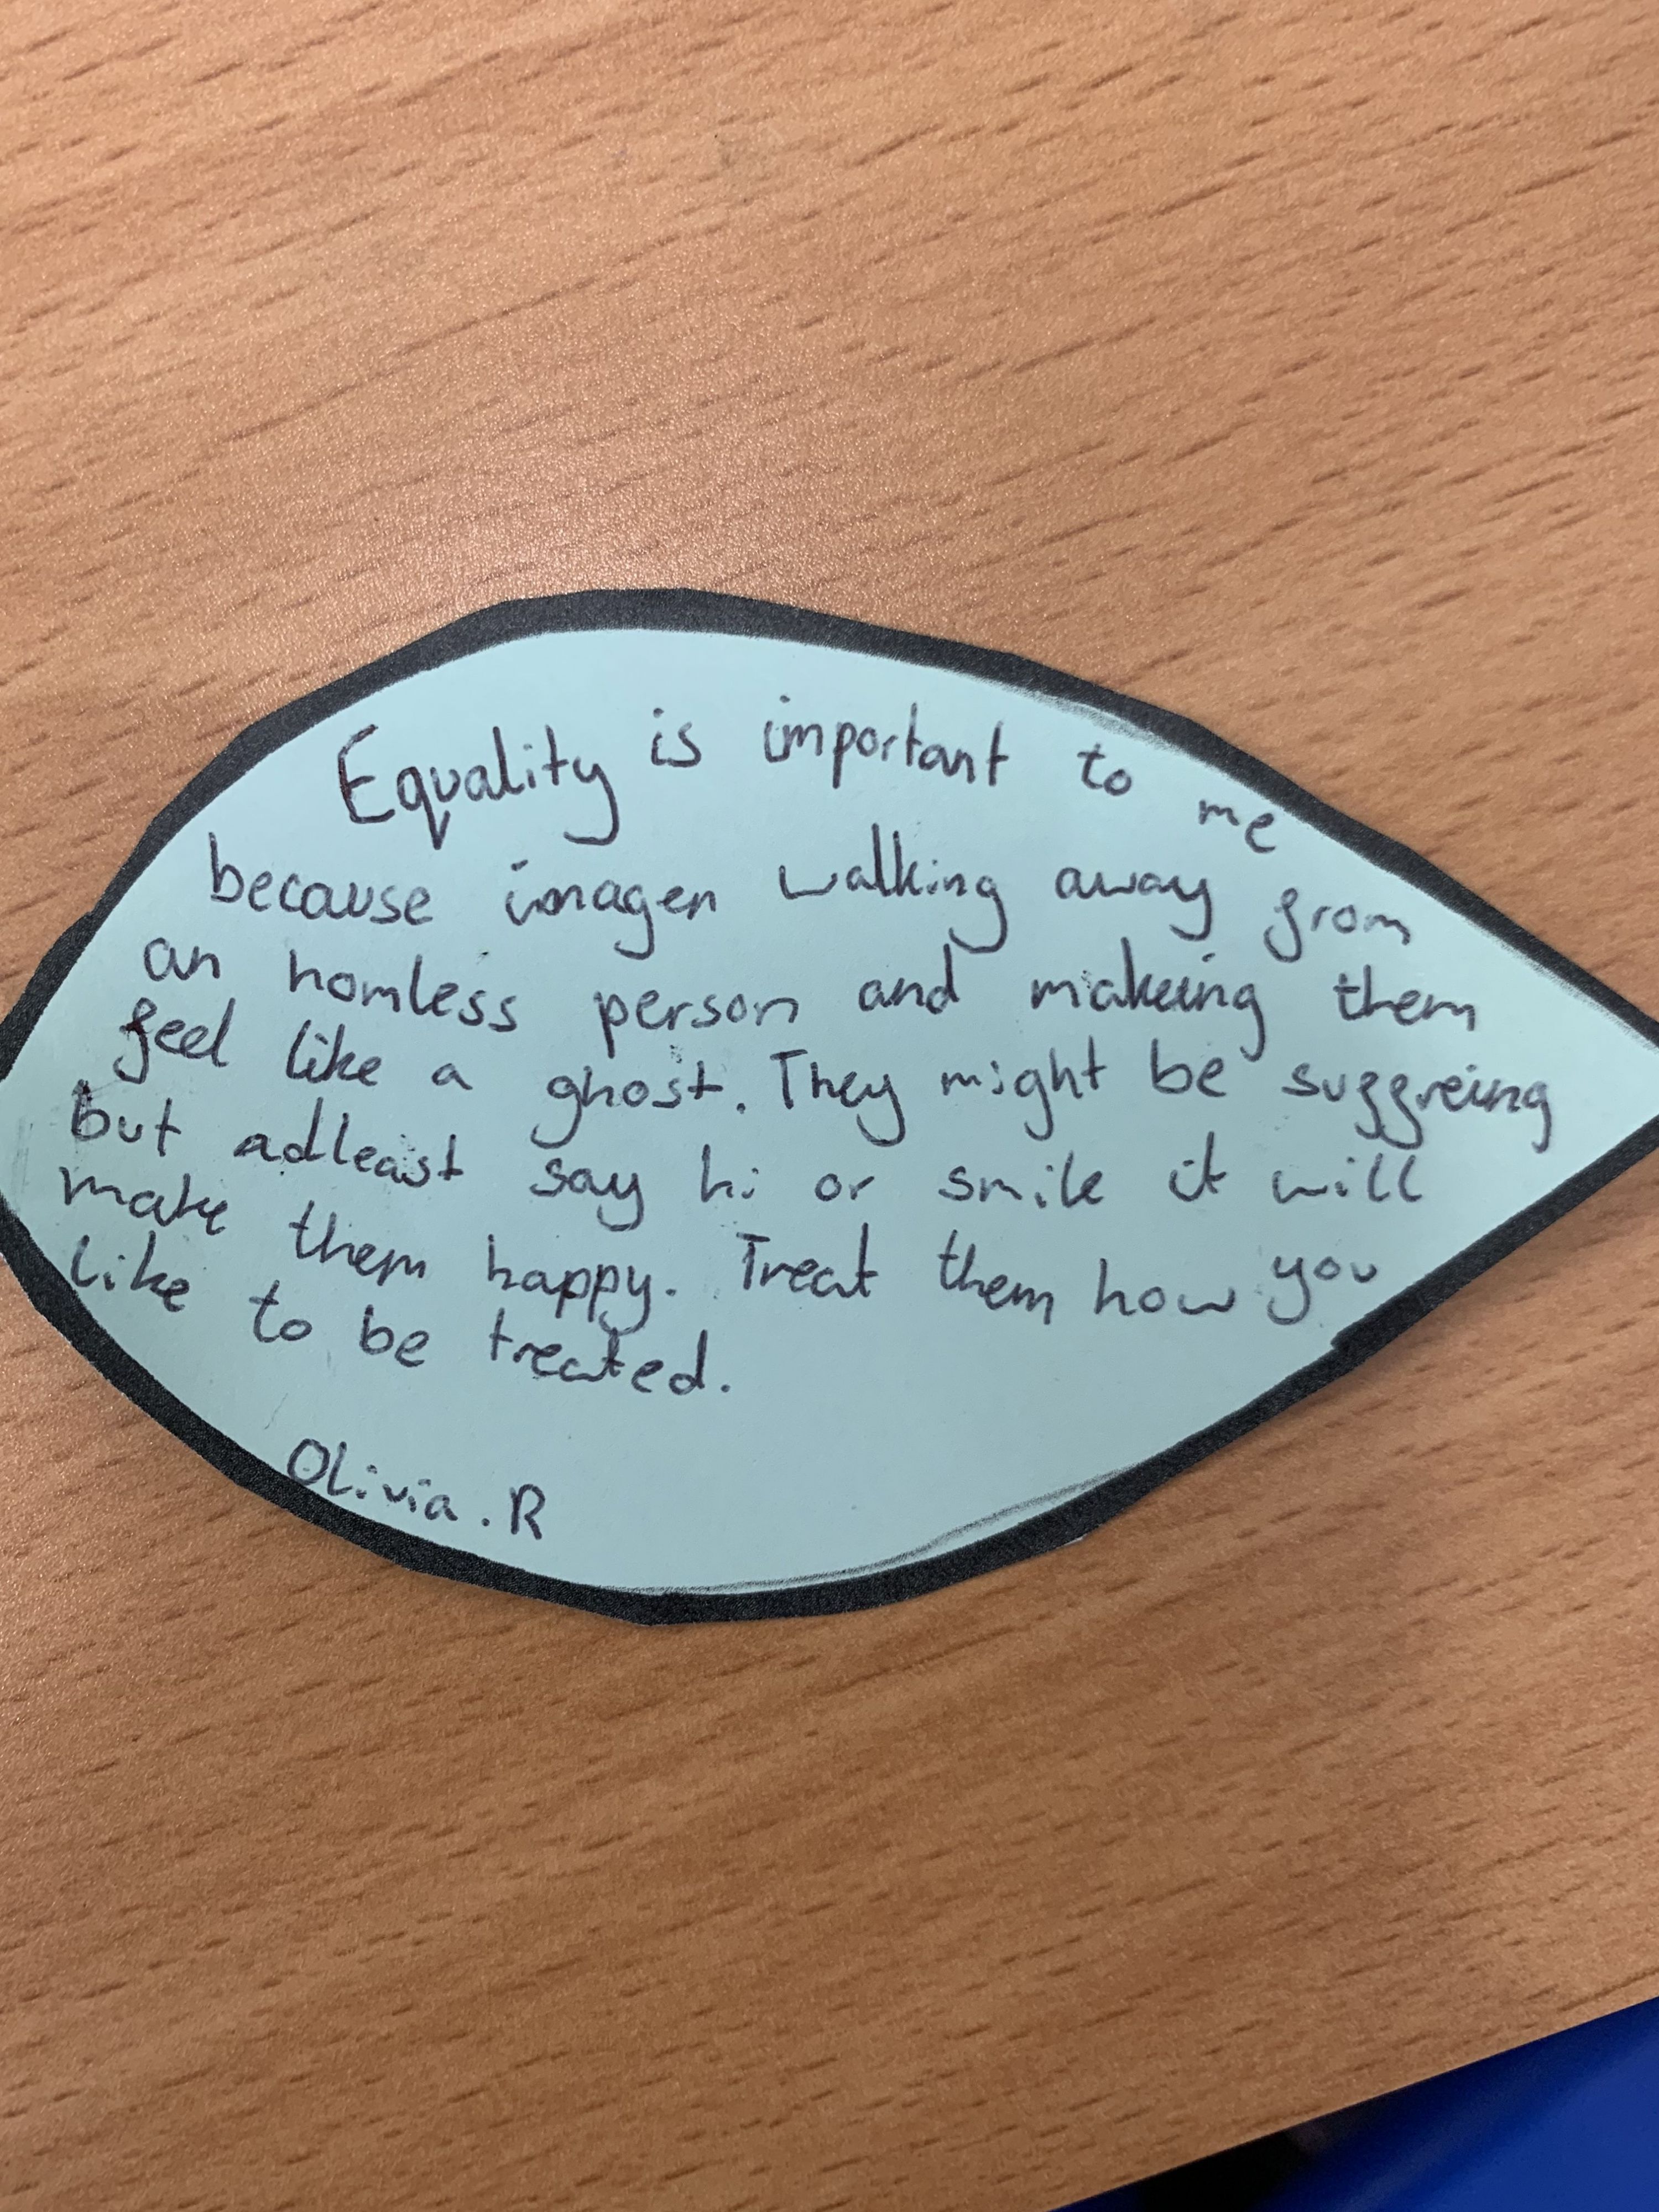 Equality is important to me
because imagen walking away from
an homless person and makeing them
feel like a ghost. They might be suffreing
but adleast say hi or smile it will
make them happy. Treat them how you
like to be treated.
Olivia . R